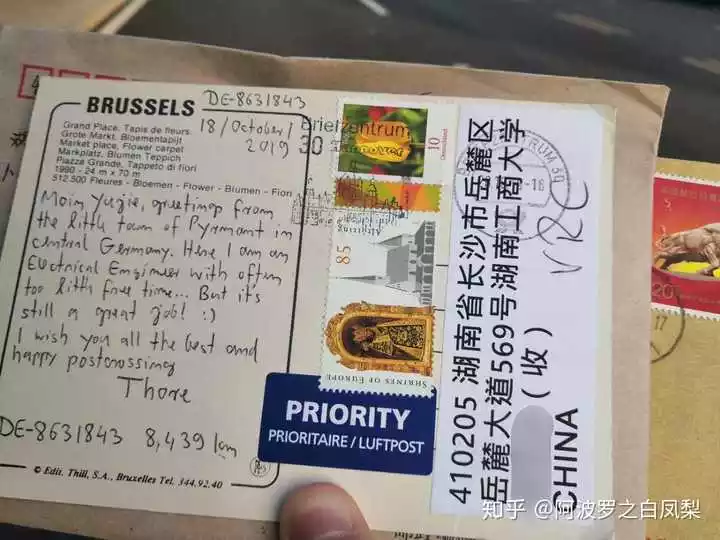 BRUSSELS
DE-8631843
Grand Place, Tapis de fleurs
Grote Markt, Bloementapijt
Market place, Flower carpet
Markplatz, Blumen Teppich
Piazza Grande, Tappeto di fiori
1990 - 24 m x 70 m
512.500 Fleures - Bloemen - Flower - Blumen - Fiori
18/October/
2019
Moin Yujie, greetings from
the little town of Pyrmont in
central Germany. Here I am an
Electrical Engineer with often
too little free time... But it's
still a great job! :)
I wish you all the best and
happy postcrossing
Thore
DE-8631843 8,439 km
© Edit. Thill, S.A., Bruxelles Tel. 344.92.40
Briefzentrum
30
10
Deutschland
85
Altötting
SHRINES OF EUROPE
PRIORITY
PRIORITAIRE / LUFTPOST
410205 湖南省长沙市岳麓区
岳麓大道569号湖南工商大学
(收)
CHINA
VRC
20
17
知乎 @阿波罗之白凤梨